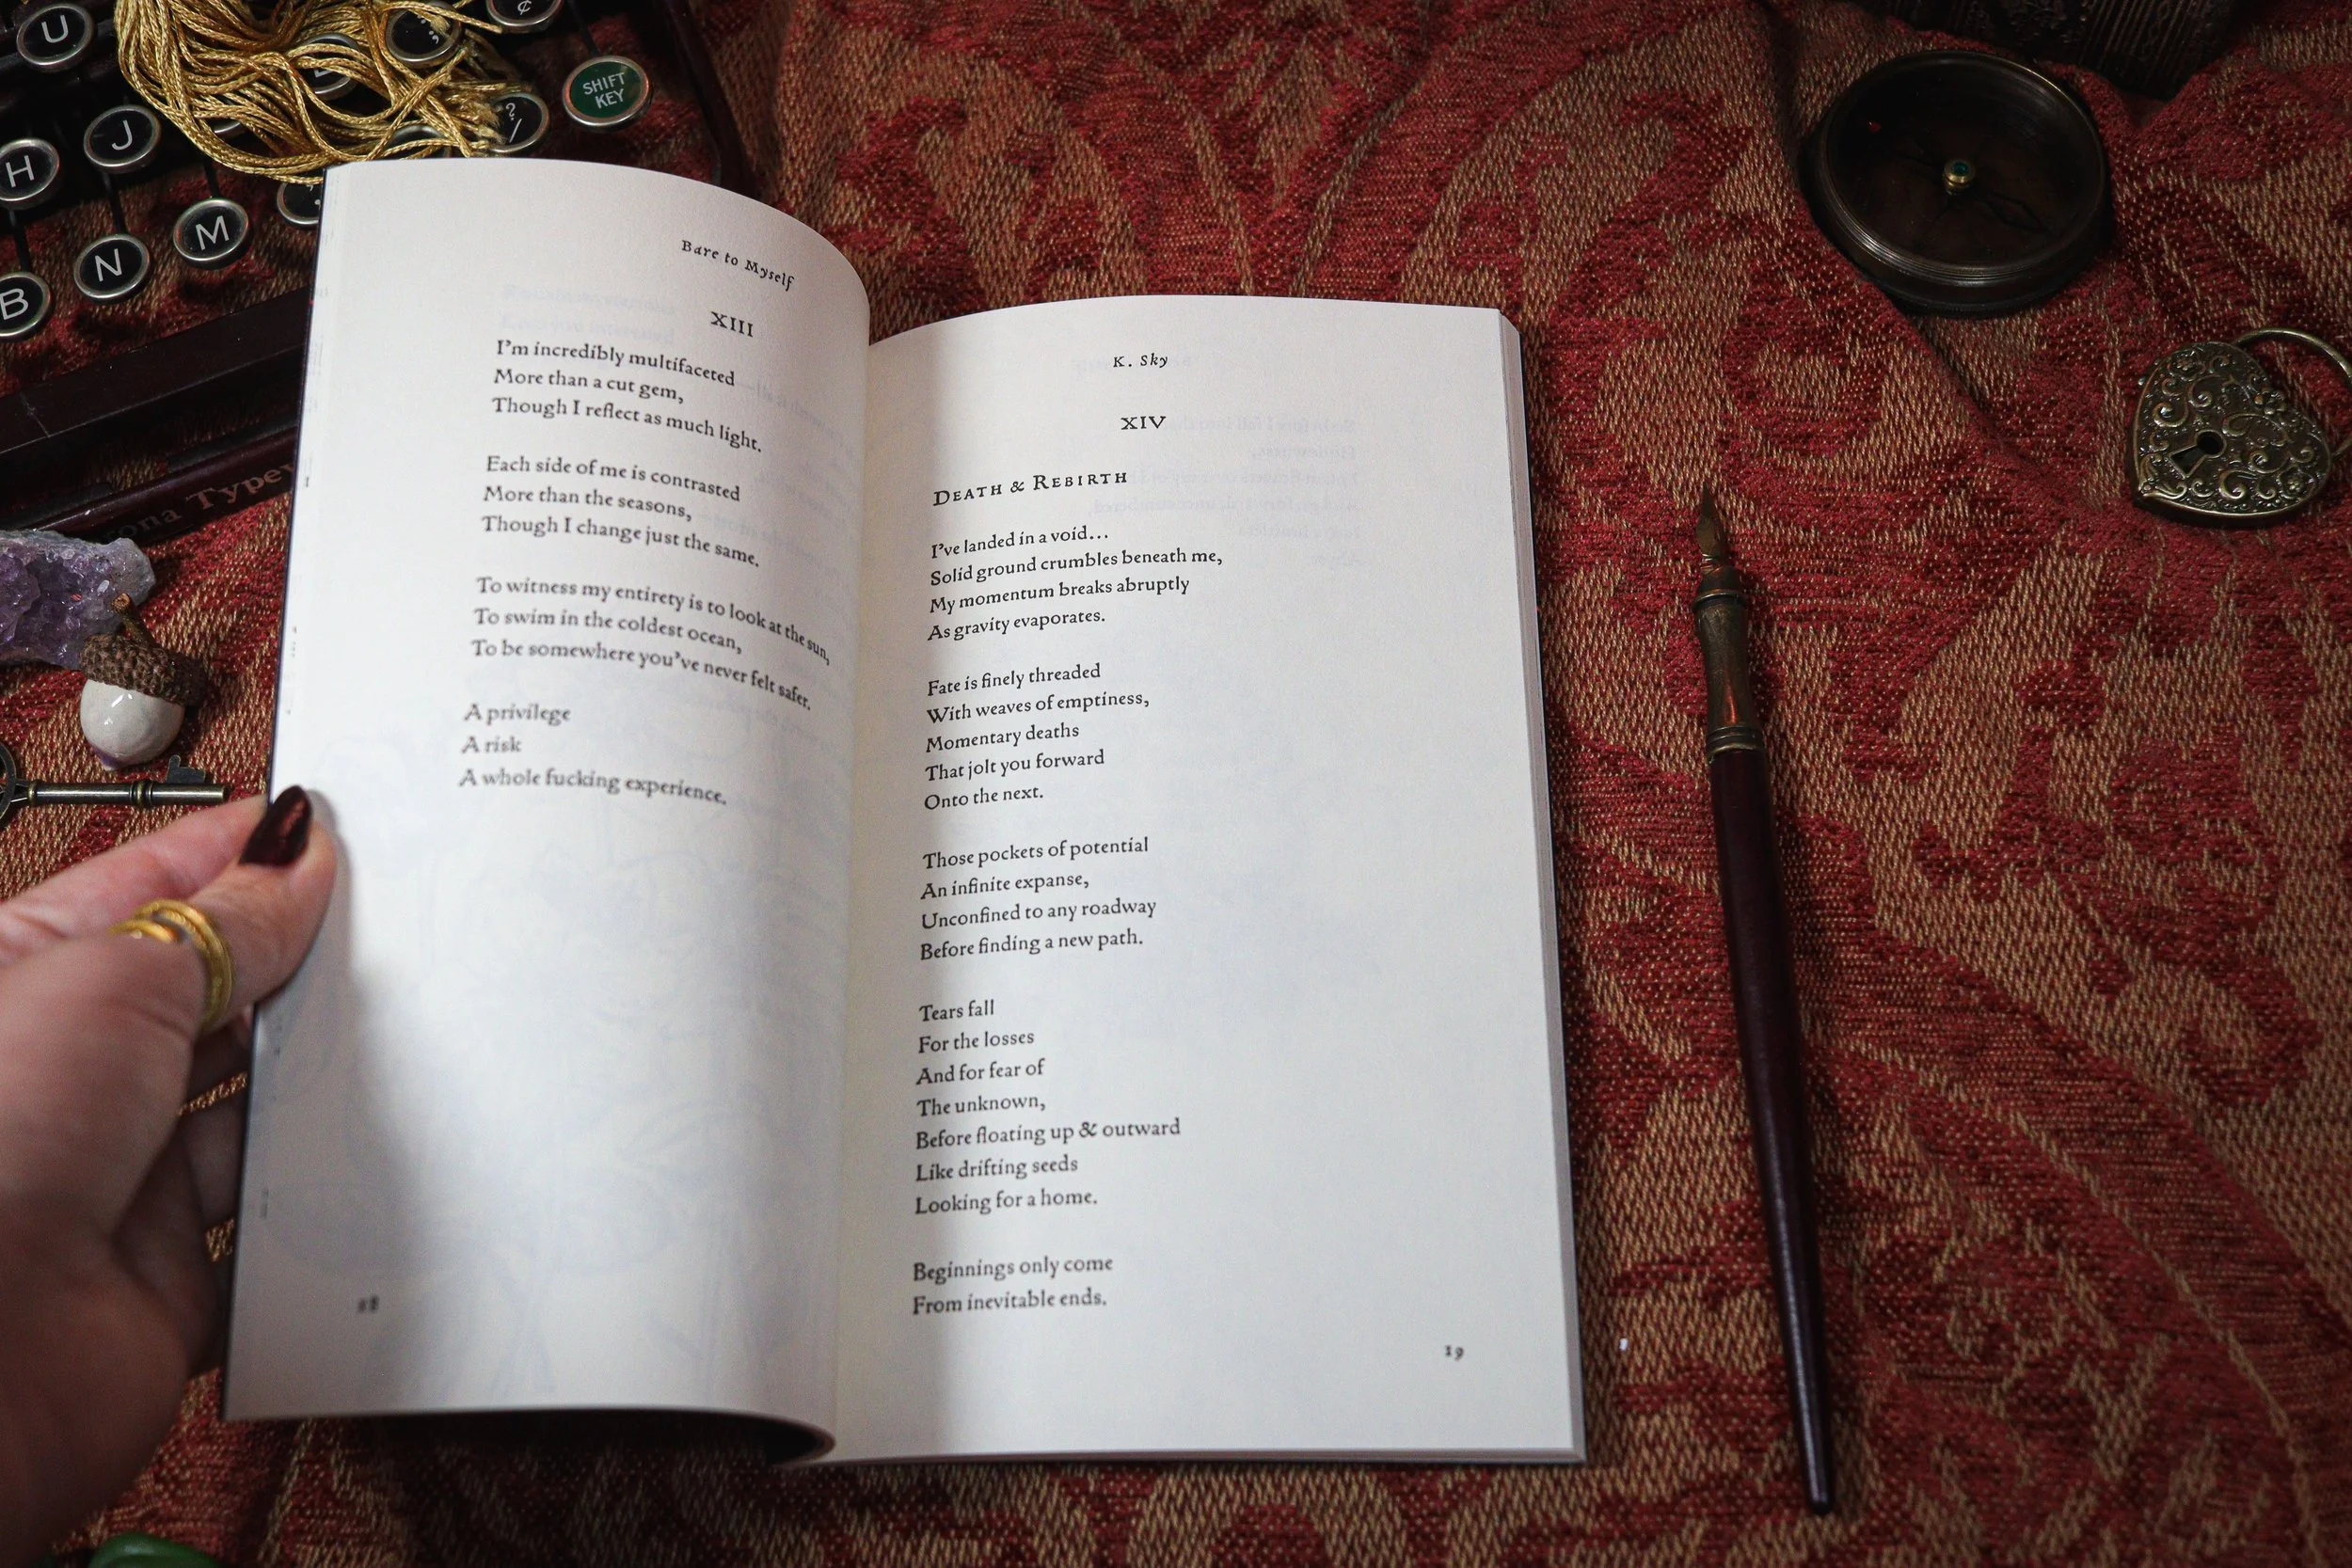 U
¢
SHIFT
KEY
?
/
H
J
M
N
B
Bare to Myself
XIII
I'm incredibly multifaceted
More than a cut gem,
Though I reflect as much light.
Each side of me is contrasted
More than the seasons,
Though I change just the same.
To witness my entirety is to look at the sun,
To swim in the coldest ocean,
To be somewhere you've never felt safer.
A privilege
A risk
A whole fucking experience.
18
K. Sky
XIV
DEATH & REBIRTH
I've landed in a void...
Solid ground crumbles beneath me,
My momentum breaks abruptly
As gravity evaporates.
Fate is finely threaded
With weaves of emptiness,
Momentary deaths
That jolt you forward
Onto the next.
Those pockets of potential
An infinite expanse,
Unconfined to any roadway
Before finding a new path.
Tears fall
For the losses
And for fear of
The unknown,
Before floating up & outward
Like drifting seeds
Looking for a home.
Beginnings only come
From inevitable ends.
19